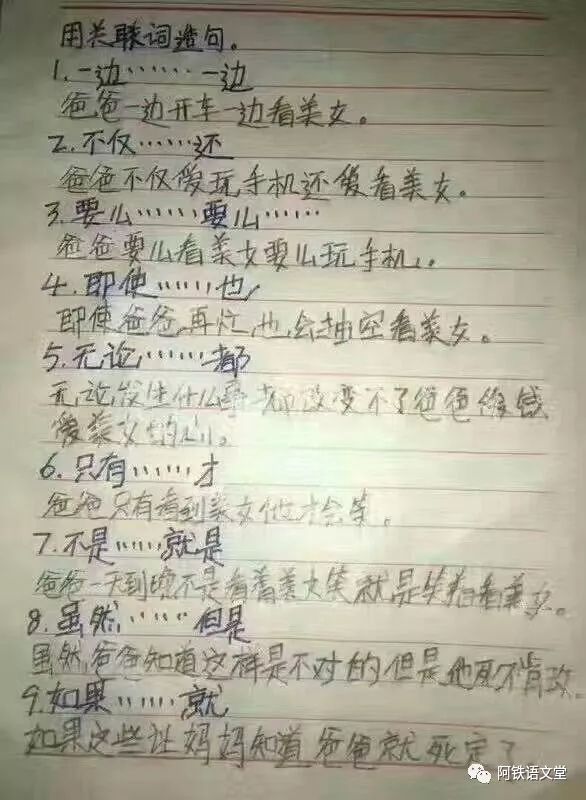 用关联词造句。
1.一边……一边
爸爸一边开车一边看美女。
2.不仅……还
爸爸不仅爱玩手机还爱看美女。
3.要么……要么……
爸爸要么看美女要么玩手机。
4.即使……也
即使爸爸再忙,也会抽空看美女。
5.无论……都
无论发生什么事都改变不了爸爸
爱美女的心。
6.只有……才
爸爸只有看到美女他才会笑。
7.不是……就是
爸爸一天到晚不是看着美女笑就是笑着看美女。
8.虽然……但是
虽然爸爸知道这样是不对的但是他死不肯改。
9.如果……就
如果这些让妈妈知道爸爸就死定了
阿铁语文堂